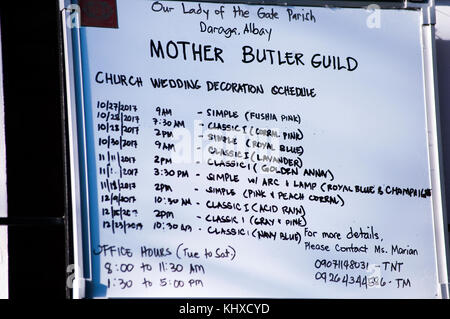 Our Lady of the Gate Parish
Daraga, Albay
MOTHER BUTLER GUILD
CHURCH WEDDING DECORATION SCHEDULE
10/27/2017 9AM - SIMPLE (FUSHIA PINK)
10/28/2017 7:30 AM - CLASSIC I (CORAL PINK)
10/28/2017 2PM - SIMPLE (ROYAL BLUE)
10/30/2017 9AM - CLASSIC I (LAVANDER)
11/11/2017 2PM - CLASSIC I (GOLDEN ANNA)
3:30 PM - SIMPLE W/ ARC & LAMP (ROYAL BLUE & CHAMPAIGNE)
11/18/2017 2PM - SIMPLE (PINK & PEACH CORRAL)
12/9/2017 10:30 AM - CLASSIC I (ACID RAIN)
2PM - CLASSIC I (GRAY & PINK)
12/23/2017 10:30 AM - CLASSIC I (NAVY BLUE)
OFFICE HOURS (Tue to Sat)
8:00 to 11:30 AM
1:30 to 5:00 PM
For more details,
Please Contact Ms. Marian
09071148031 - TNT
- TM
alamy
Image ID: HHXCYD
www.alamy.com